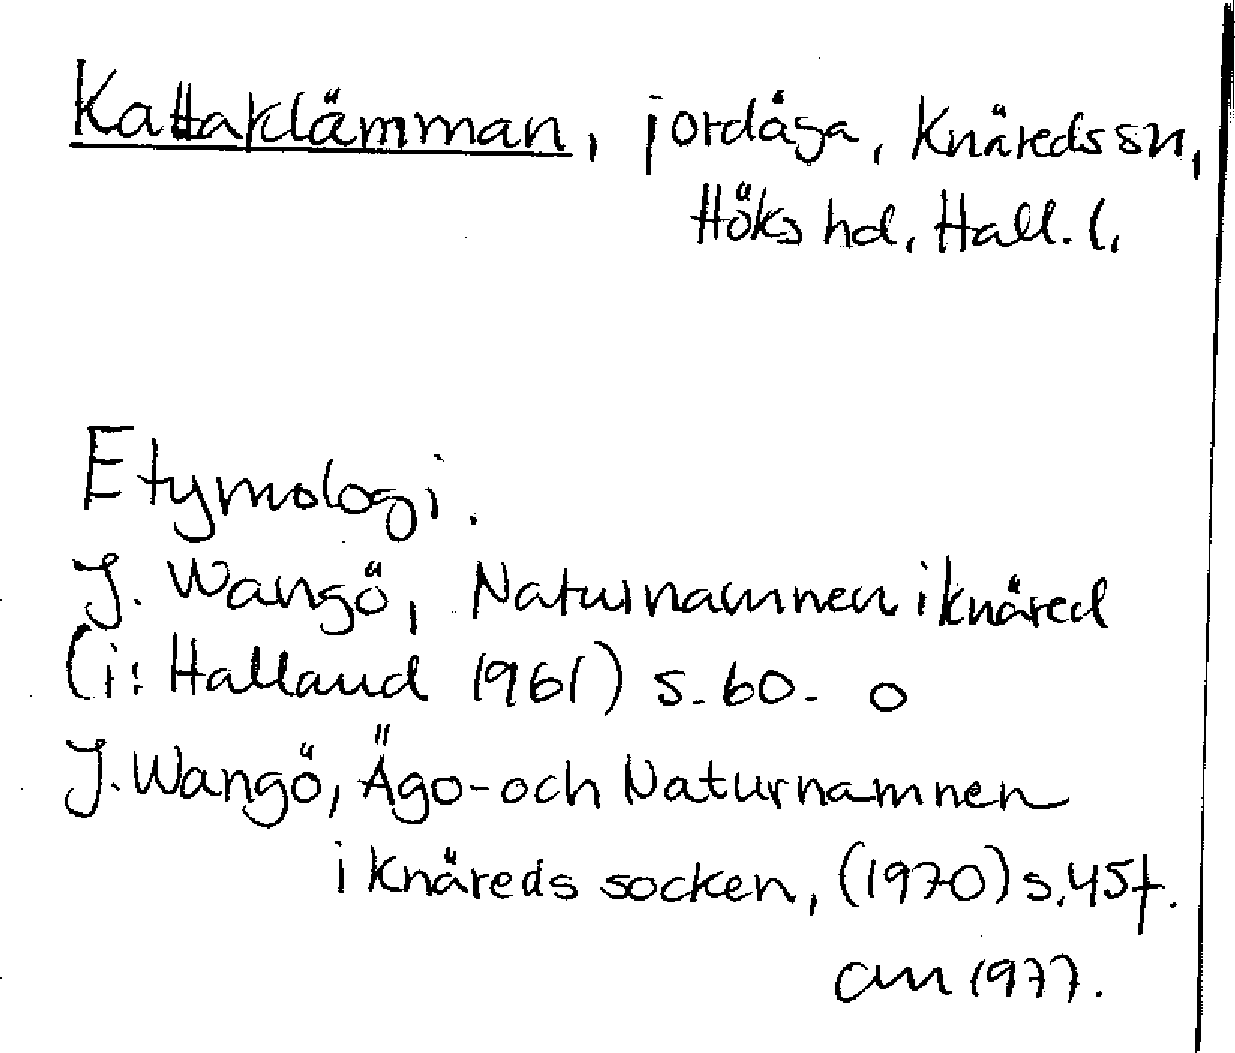 Kattaklämman, jordåga, Knäreds sn,
Höks hd, Hall. l.
Etymologi.
J. Wangö, Naturnamnen i knäred
(i: Halland 1961) s. 60. o
J. Wangö, Ägo- och Naturnamnen
i knäreds socken, (1970) s. 45f.
am 1977.